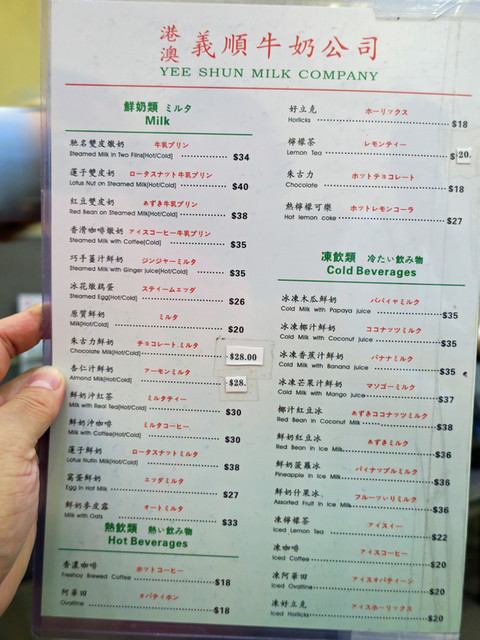 港澳 義順牛奶公司
YEE SHUN MILK COMPANY
鮮奶類 ミルタ
Milk
馳名雙皮燉奶 牛乳プリン
Steamed Milk in Two Films[Hot/Cold] $34
蓮子雙皮奶 ロータスナット牛乳プリン
Lotus Nut on Steamed Milk[Hot/Cold] $40
紅豆雙皮奶 あずき牛乳プリン
Red Bean on Steamed Milk[Hot/Cold] $38
香滑咖啡燉奶 アイスコーヒー牛乳プリン
Steamed Milk with Coffee[Cold] $35
巧手薑汁鮮奶 ジンジャーミルタ
Steamed Milk with Ginger juice[Hot/Cold] $35
冰花燉鷄蛋 スティームエッダ
Steamed Egg[Hot/Cold] $26
原質鮮奶 ミルタ
Milk[Hot/Cold] $20
朱古力鮮奶 チョコレート.ミルタ
Chocolate Milk[Hot/Cold] $28.00
杏仁汁鮮奶 アーモンミルタ
Almond Milk[Hot/Cold] $28.
鮮奶沖紅茶 ミルタティー
Milk with Real Tea[Hot/Cold] $30
鮮奶沖咖啡 ミルタコーヒー
Milk with Coffee[Hot/Cold] $30
蓮子鮮奶 ロータスナットミルタ
Lotus Nutin Milk[Hot/Cold] $38
窩蛋鮮奶 エッダミルタ
Egg in Hot Milk $27
鮮奶麥皮露 オートミルタ
Milk with Oats $33
熱飲類 熱い飲み物
Hot Beverages
香濃咖啡 ホットコーヒー
Freshoy Brewed Coffee $18
阿華田 オバティホン
Ovaltine $18
好立克 ホーリックス
Horlicks $18
檸檬茶 レモンティー
Lemon Tea $20.
朱古力 ホットチョコレート
Chocolate $18
熱檸檬可樂 ホットレモンコーラ
Hot lemon coke $27
凍飲類 冷たい飲み物
Cold Beverages
冰凍木瓜鮮奶 パパイヤミルク
Cold Milk with Papaya juice $35
冰凍椰汁鮮奶 ココナッツミルク
Cold Milk with Coconut juice $35
冰凍香蕉汁鮮奶 バナナミルク
Cold Milk with Banana juice $35
冰凍芒果汁鮮奶 マンゴーミルク
Cold Milk with Mango juice $37
椰汁紅豆冰 あずきココナッツミルク
Red Bean in Coconut Milk $38
鮮奶紅豆冰 あずきミルク
Red Bean in Ice Milk $36
鮮奶菠蘿冰 パイナップルミルク
Pineapple in Ice Milk $36
鮮奶什果冰 フルーツいりミルク
Assorted Fruit in Ice Milk $36
凍檸檬茶 アイスイー
Iced Lemon Tea $22
凍咖啡 アイスコーヒー
Iced Coffee $20
凍阿華田 アイスオバティーン
Iced Ovaltine $20
凍好立克 アイスホーリックス
Iced Horlicks $20